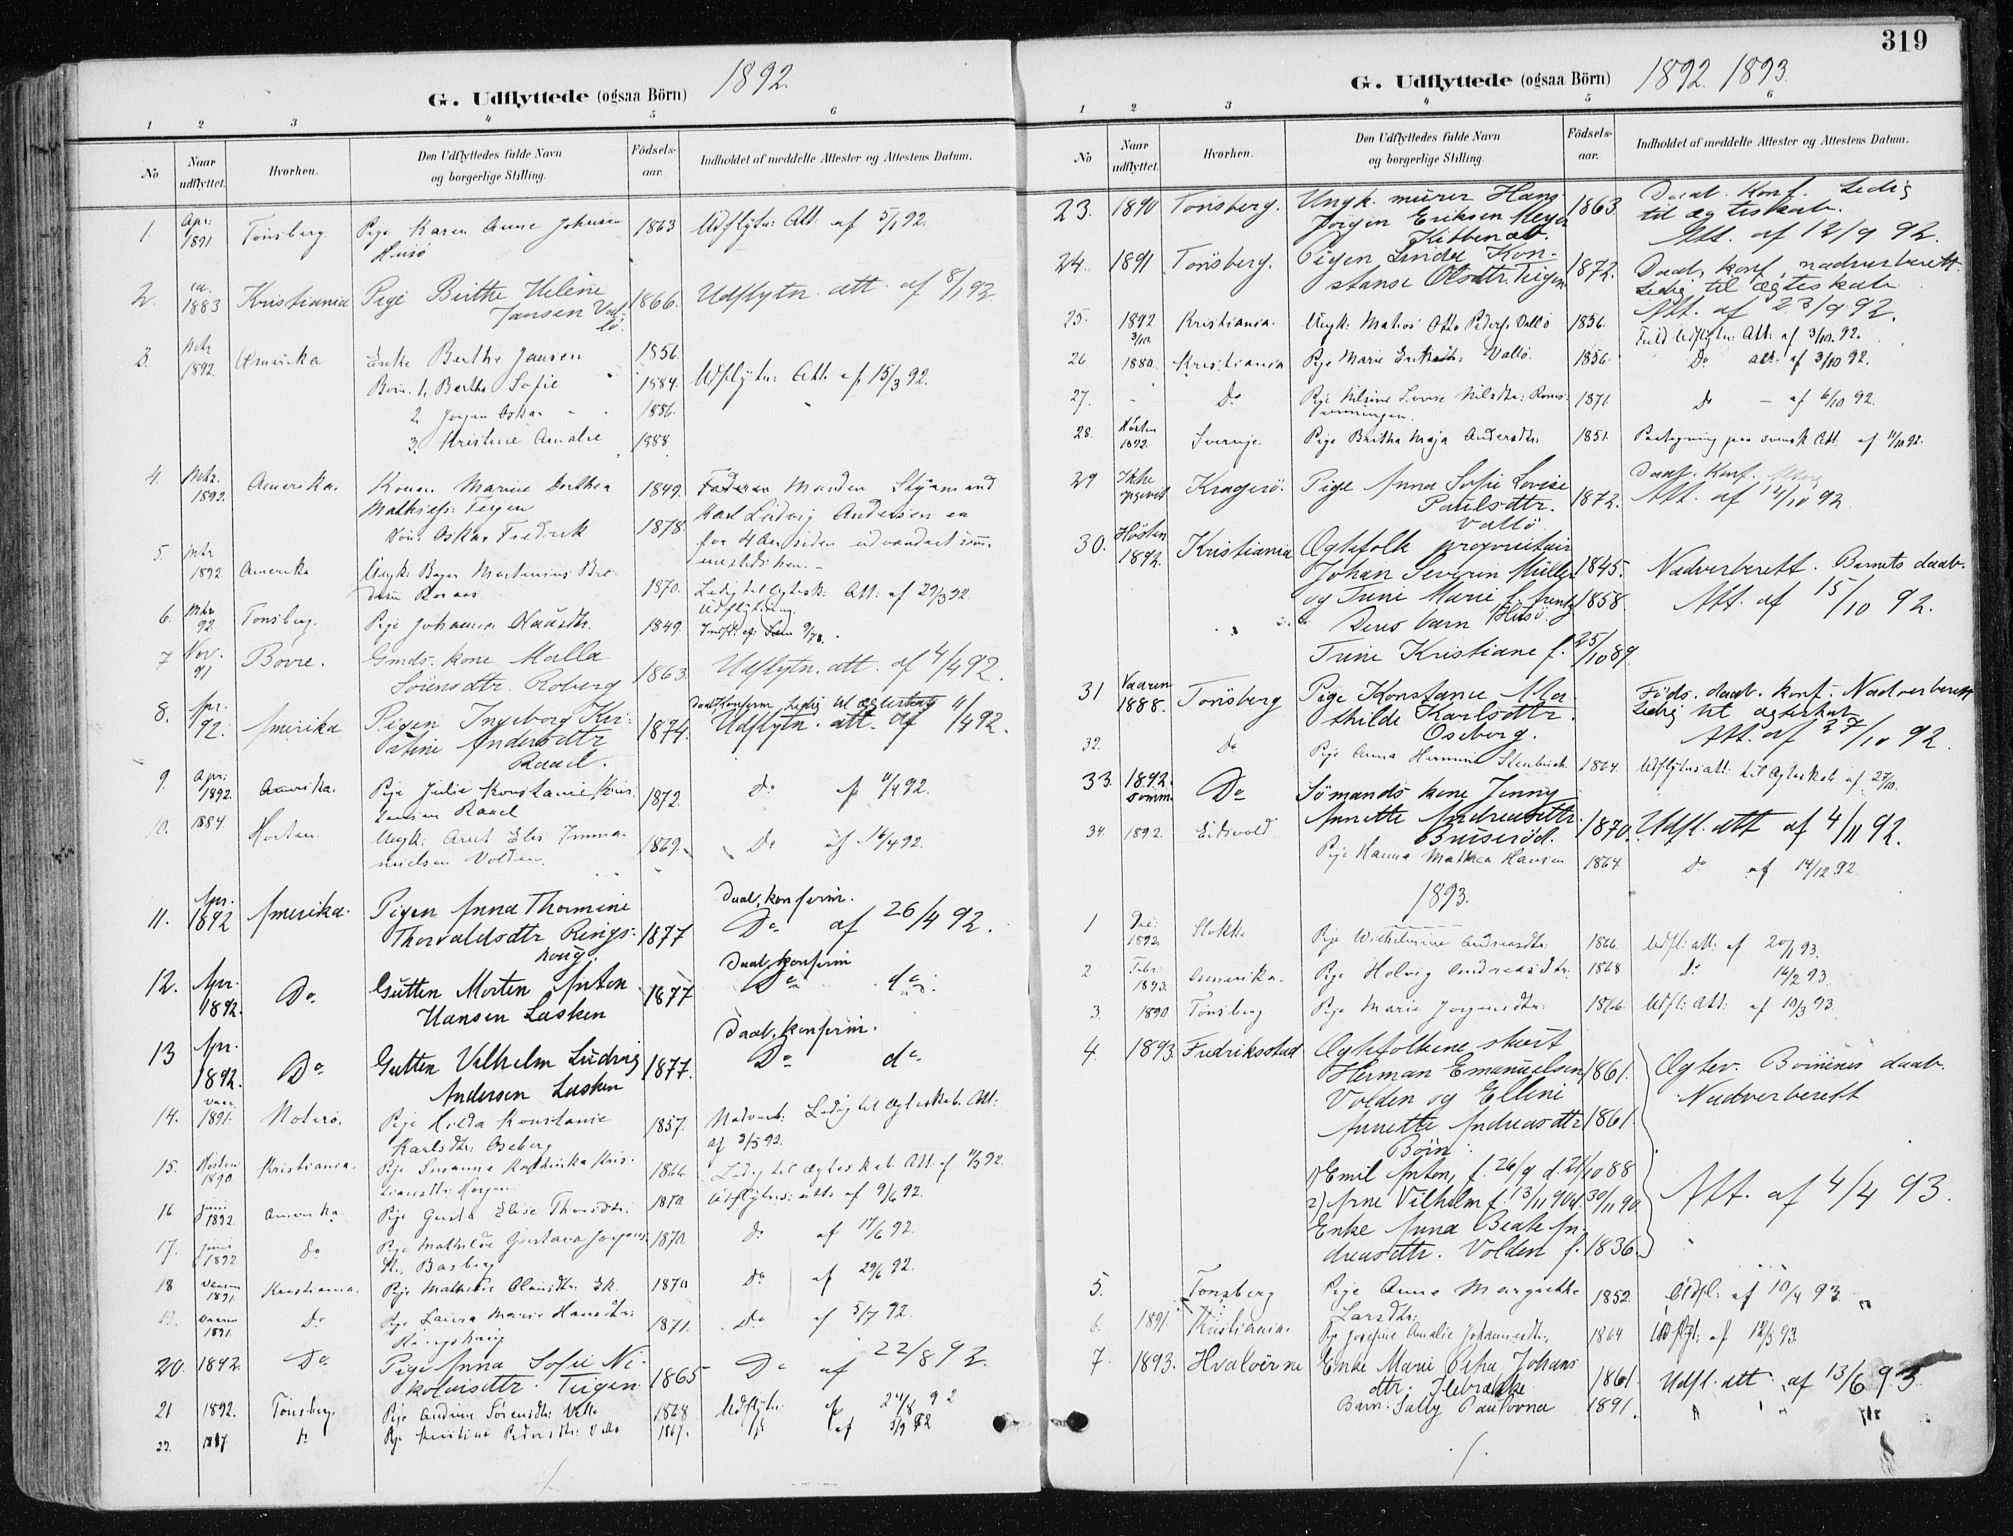 G. Udflyttede (ogsaa Börn) 1892.
1 2 3 4 5 6
No Naar udflyttet. Hvorhen. Den Udflyttedes fulde Navn og borgerlige Stilling. Födsels-aar. Indholdet af meddelte Attester og Attestens Datum.
1 Apr: 1891 Tönsberg Pige Karen Anne Johnsen 1863 Udflytn: Att. af 5/1 92.
Husö
2. ca. 1883 Kristiania Pige Berthe Helene 1866. Udflytn. att. af 8/1 92
Jansen Vallö.
3. Mtz 1892. Amerika Enke Berthe Jansen 1856.
Börn. 1, Berthe Sofie 1884. Udflytn: Att. af 15/3 92.
2. Jörgen Oskar 1886.
3. Kristine Amalie 1888.
4. Mtz. 1892. Amerika. Konen Marine Dorthea 1849. Manden Styrmand
Mathiass: Teigen Karl Ludvig Andersen
Sön: Oskar Fredrik 1878. for 4 Aar siden udvandret
5. Mtz 1892 Amerika Ungk: Martinius 1870. Ledig til Ægtesk: Att: af 29/3 92
6. Mtz 92. Tönsberg. Pige Johanna 1849.
7 Nov. 91 Borre. Gmds. kone Malla 1863. Udflytn. att. af 4/4 92.
Sörensdtr. Roberg
8. Apr. 92. Amerika Pigen Ingeborg Kri- 1874. Daab, Konfirm. Ledig til ægteskab
stine Andersdtr Udflytn. att. af 11/4 92.
Raael.
9. Apr: 1892. Amerika. Pige Julie Konstanse Kris- 1872. Do af 11/4 92.
tensen Raael
10. 1884 Horten Ungk: Emma- 1869. Do af 16/4 92.
nuelsen Volden.
11. Apr. 1892 Amerika. Pigen Anna Thormine 1877 Daab, konfirm.
Thorvaldsdtr Rings- Do af 26/4 92.
houg.
12. Apr. 1892. Do Gutten Morten Anton 1877 Daab, konfirm
Hansen Lasken Do do
13 Apr. 1892. Do Gutten Vilhelm Ludvig 1877. Daab, konfirm.
Andersen Lasken Do do
14. Vaar 1891. Nöterö. Pige Hilda Konstanse 1857. Ledig til Ægteskab. Att:
Karlsdtr: Oseberg af 3/5 92.
15. Hösten 1890 Kristiania. Pige Susanne Kris- 1866 Ledig til Ægteskab. Att. af
tiansdtr:
16 Juni 1892. Amerika Pige Gusta Elise 1870 Udflytn: att. af 9/6 92.
17. Juni 1892 Do Pige Mathilde Gustava Jörgens- 1870 Do af 17/6 92.
dtr. Basberg
18 Vaaren 1891. Kristiania. Pige Mathilde Olausdtr: Ek. 1870 Do af 29/6 92.
19. Vaaren 1891. Do Pige Laura Marie Hansdtr: 1871. Do af 5/7 92.
Ringshoug
20. 1892. Do Pige Anna Sofie Ni- 1865 Do af 22/8 92.
kolaisdtr. Teigen
21 1892. Tönsberg. Pige Andrine Sörensdtr: 1868 Udflytn: af 24/8 92
22. 1887 Do Pige Kristine Pedersdtr: Vallö 1867. af 5/9 92
319
G. Udflyttede (ogsaa Börn) 1892. 1893.
1 2 3 4 5 6
No Naar udflyttet. Hvorhen. Den Udflyttedes fulde Navn og borgerlige Stilling. Födsels-aar. Indholdet af meddelte Attester og Attestens Datum.
23. 1890 Tönsberg. Ungk. murer Hans 1863. Daab. Konf. Ledig
Jörgen Eriksen Meyer til ægteskab.
Att. af 12/9 92.
24. 1891 Tonsberg. Pigen Linda Kon- 1872. Daab, konf., nadverberett.
stanse Olsdtr. Teigen Ledig til ægteskab
Att. af 23/9 92.
25. 1892 3/10. Kristiania. Ungk: Matros Otto Peders: Vallö 1856. Fuld Udflytn: Att: af 3/10. 92.
26 1880. Kristiania Pige Marie Vallö 1856. Do att. af 3/10 92.
27. - Do Pige Nilsine Lovise Nilsdtr: 1871. Do - af 6/10 92.
28. Hösten 1892. Sverrige. Pige Britha Maja Andersdtr: 1851. Paategning paa svensk Att. af 11/10 92.
29 Ikke opgivet Kragerö. Pige Anna Sofie Lovise 1872. Daab. Konf.
Paulsdtr. Att. af 14/10 92
Vallö.
30. Hösten 1892. Kristiania Ægtefolk proprietair
Johan Severin Müller 1845. Nadverberett. Barnets daab.
og Trine Marie f. 1858. Att. af 15/10 92.
Deres barn Husö.
Trine Kristiane f. 25/10 89.
31 Vaaren 1888. Tonsberg Pige Konstanse Ma- Föds. daab. konf. Nadverberett
thilde Karlsdtr. Ledig til ægteskab
Oseberg. Att. af 27/10 92.
32. Do Pige Anna Hermine 1864. Udflytnsatt: til Ægteskab af 27/10.
33. 1892. Somm. Do Sömands kone Jenny
Annette Andreasdtr. 1870. Udfl. att af 4/11 92.
Buseröd.
34. 1892. Eidsvold. Pige Hanna Mathea Hansen 1864 Do af 14/12 92
1893.
1 Dec: 1892. Stokke Pige Wilhelmine Andreasdtr: 1866 Udfl: att: af 20/1 93.
2 Febr: 1893. Amerika. Pige Helvig Andreasdtr: 1868 Do 16/2 93.
3. 1890 Tönsberg Pige Marie Jörgensdtr: 1866. Udfl: Att: af 10/3 93.
4. 1893. Fredriksstad Ægtefolkene skust
Herman Emanuelsen 1861. Ægtev. Börnenes daab.
Volden og Elline Nadverberett
Annette Andreasdtr 1861.
Börn:
1) Emil Anton, f. 26/9 d. 21/10 88
2) Arne Vilhelm f. 13/11 90 d. 30/11 90. Att. af 4/4 93.
Enke Anna Beate An-
dreasdtr. Volden f. 1836.
5. Tonsberg Pige Anne Margrethe 1852. Udfl: af 10/4 93.
Larsdtr:
6. 1891. Kristiania. Pige Josefine Amalie Johannesdtr: 1864 Udfl: af 12/5 93.
7 1893. Hvaloerne Enke Marie Johans 1861. Udfl. att. af 13/6 93.
dtr.
Barn: Sally Paulovna 1891.